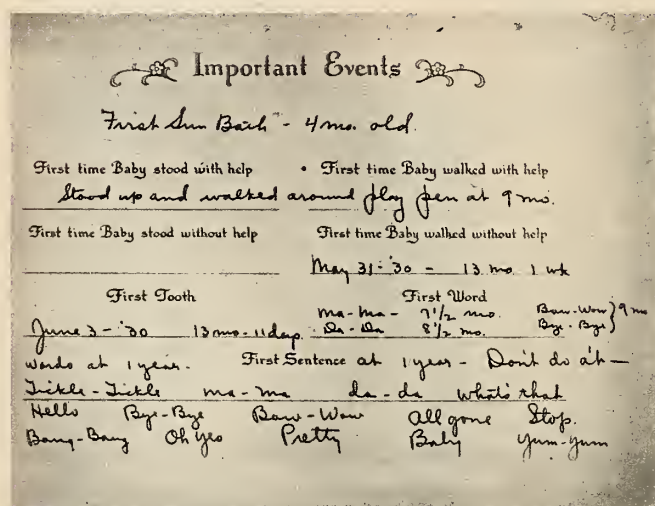 Important Events
First Sun Bath - 4 mo. old.
First time Baby stood with help • First time Baby walked with help
Stood up and walked around play pen at 9 mo.
First time Baby stood without help First time Baby walked without help
May 31 - '30 - 13 mo. 1 wk
First Tooth First Word
ma-ma - 7 1/2 mo. Bow-Wow } 9 mo
June 3 - '30 13 mo - 11 days. Da - Da 8 1/2 mo. Bye - Bye
words at 1 year. First Sentence at 1 year - Don't do a't -
Tickle - Tickle ma - ma da - da What's that
Hello Bye-Bye Bow - Wow all gone Stop.
Bang-Bang Oh yes Pretty Baby Yum-Yum